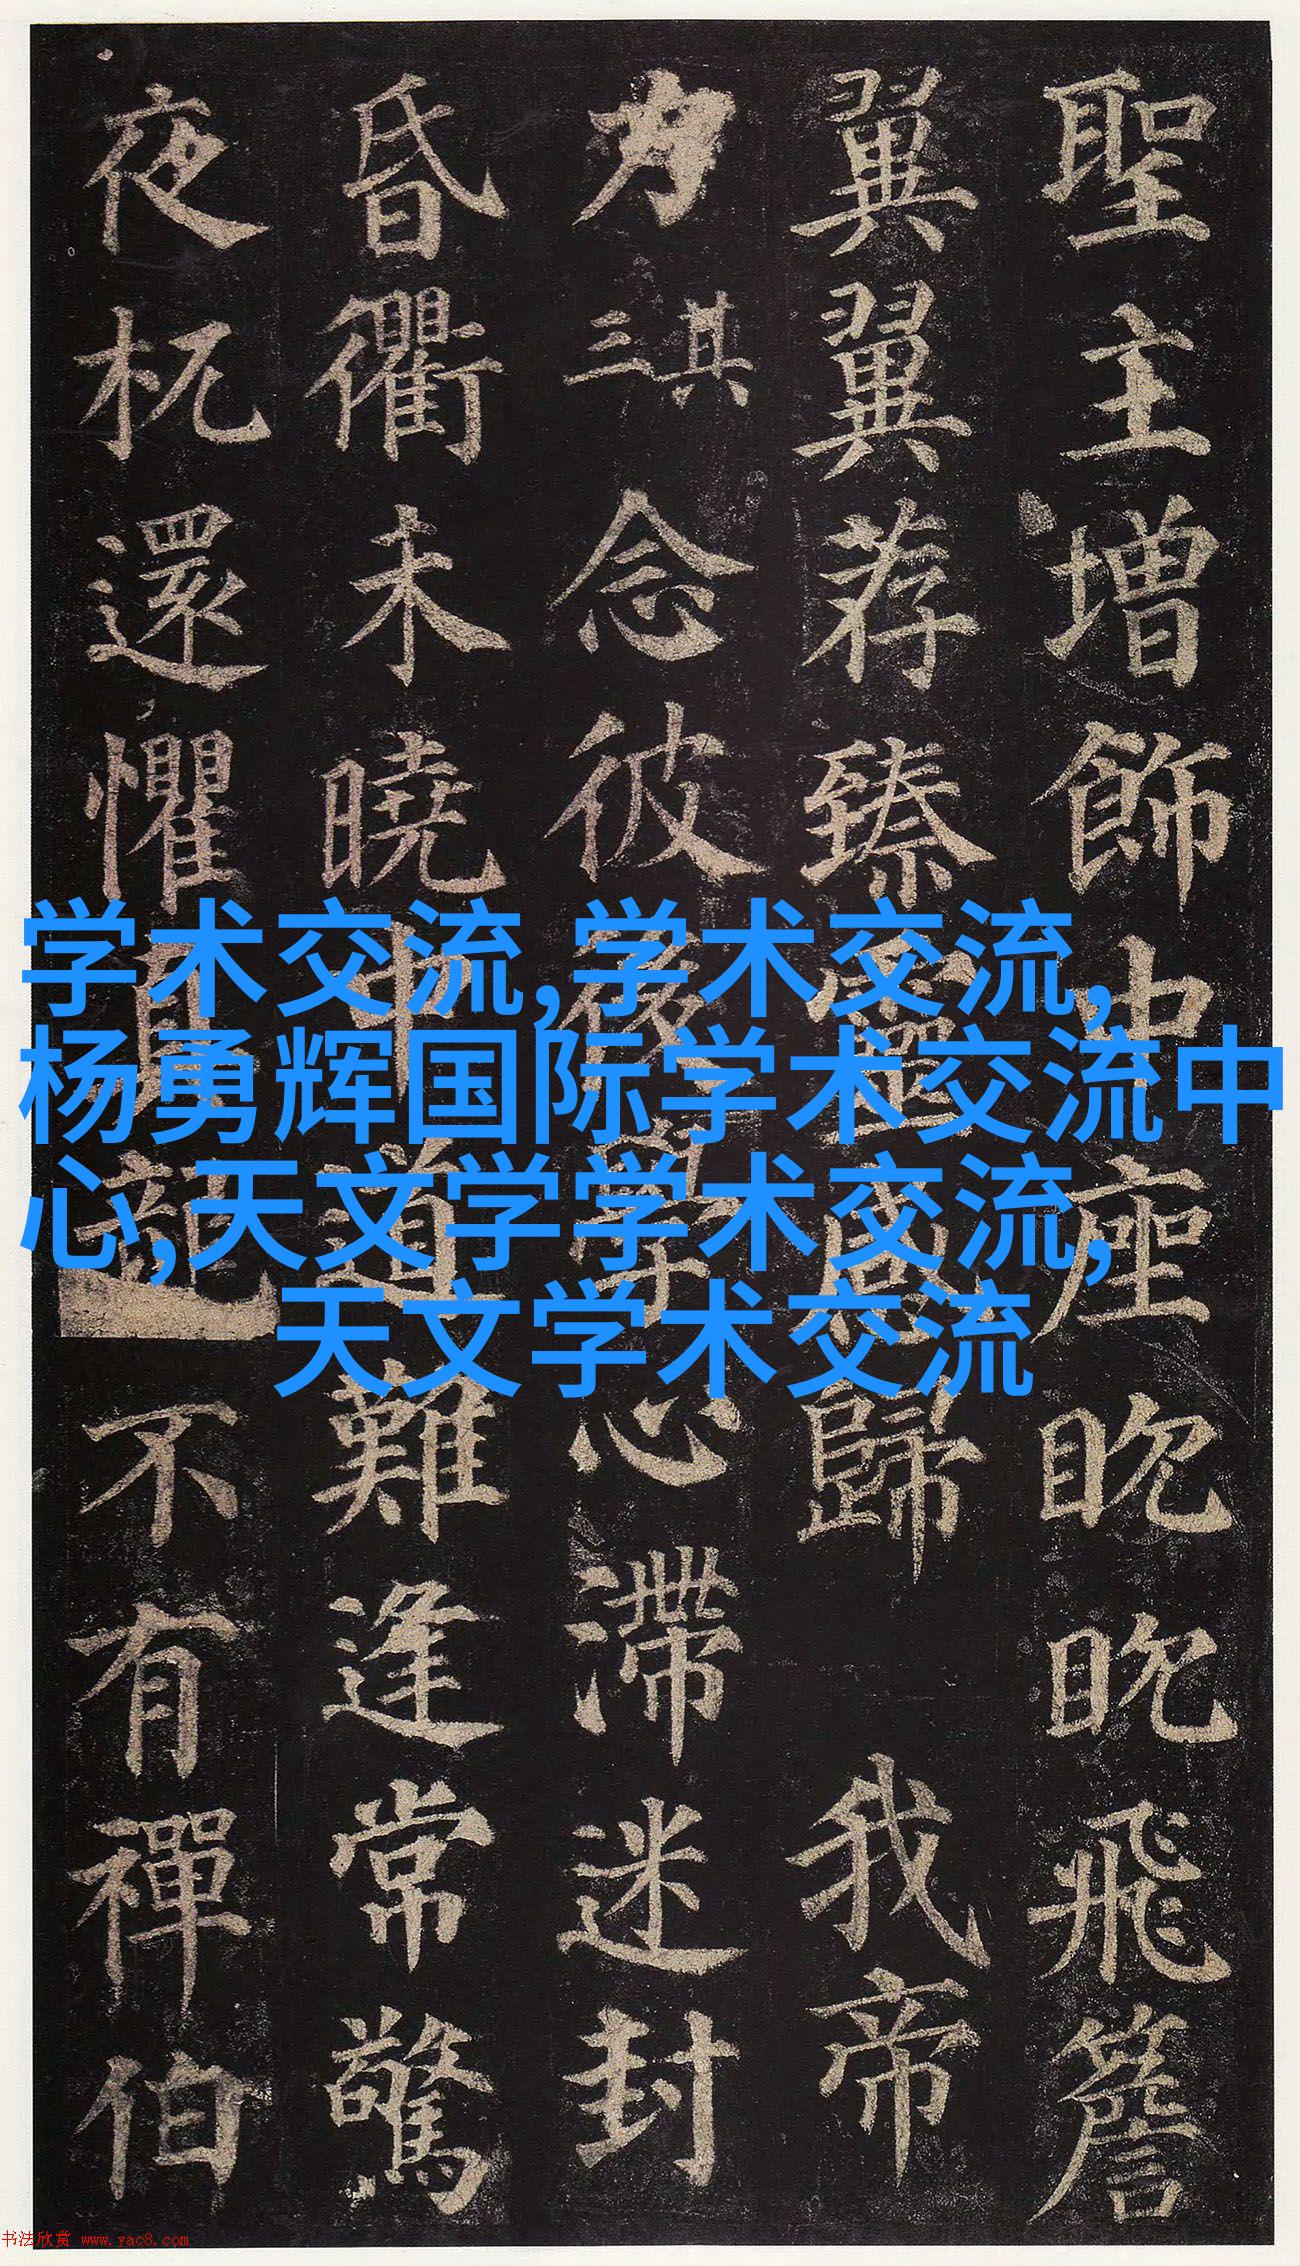 聖主增飾中座眈眈飛簷
翼翼荐臻靈感歸我帝
力其三念彼後學心滯迷封
昏衢未曉中道難逢常驚
夜杌還懼真龍不有禪伯
学术交流,学术交流,
杨勇辉国际学术交流中
心,天文学学术交流,
天文学术交流
书法欣赏 www.yac8.com